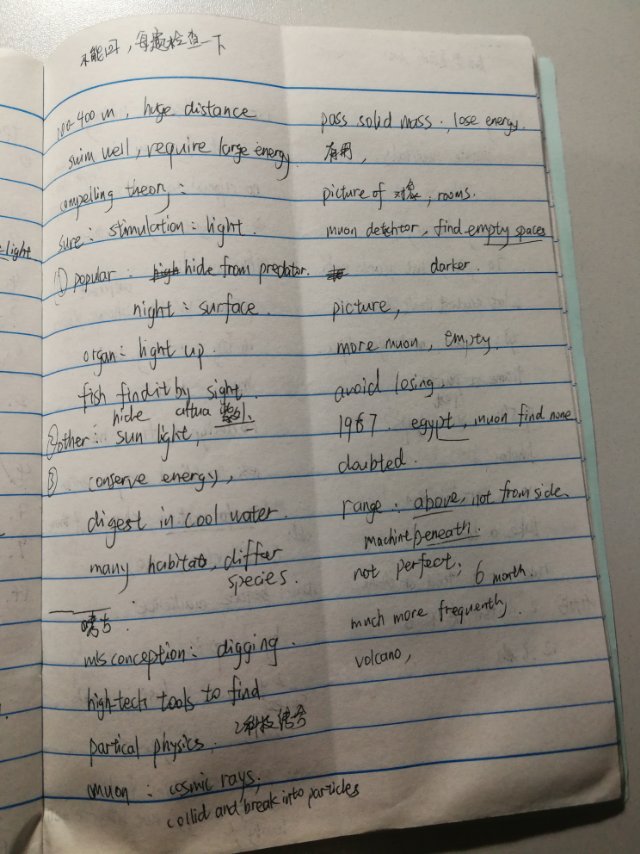 不能回，每题检查一下
400 m, huge distance
swim well, require large energy
compelling theory:
sure: stimulation: light.
① popular: hide from predator.
night: surface.
organ: light up.
fish find it by sight.
hide
② other: sun light,
③ conserve energy,
digest in cool water.
many habitats, differ
species.
考古:
misconception: digging.
high-tech tools to find
partical physics. 2科技结合
muon: cosmic rays,
collid and break into particles
pass solid mass., lose energy.
有用,
picture of 对象, rooms.
muon detchtor, find empty spaces
darker.
picture,
more muon, empty.
avoid losing.
1967. egypt, muon find none
doubted.
range: above, not from side.
machine beneath.
not perfect; 6 month.
much more frequently.
volcano,
light